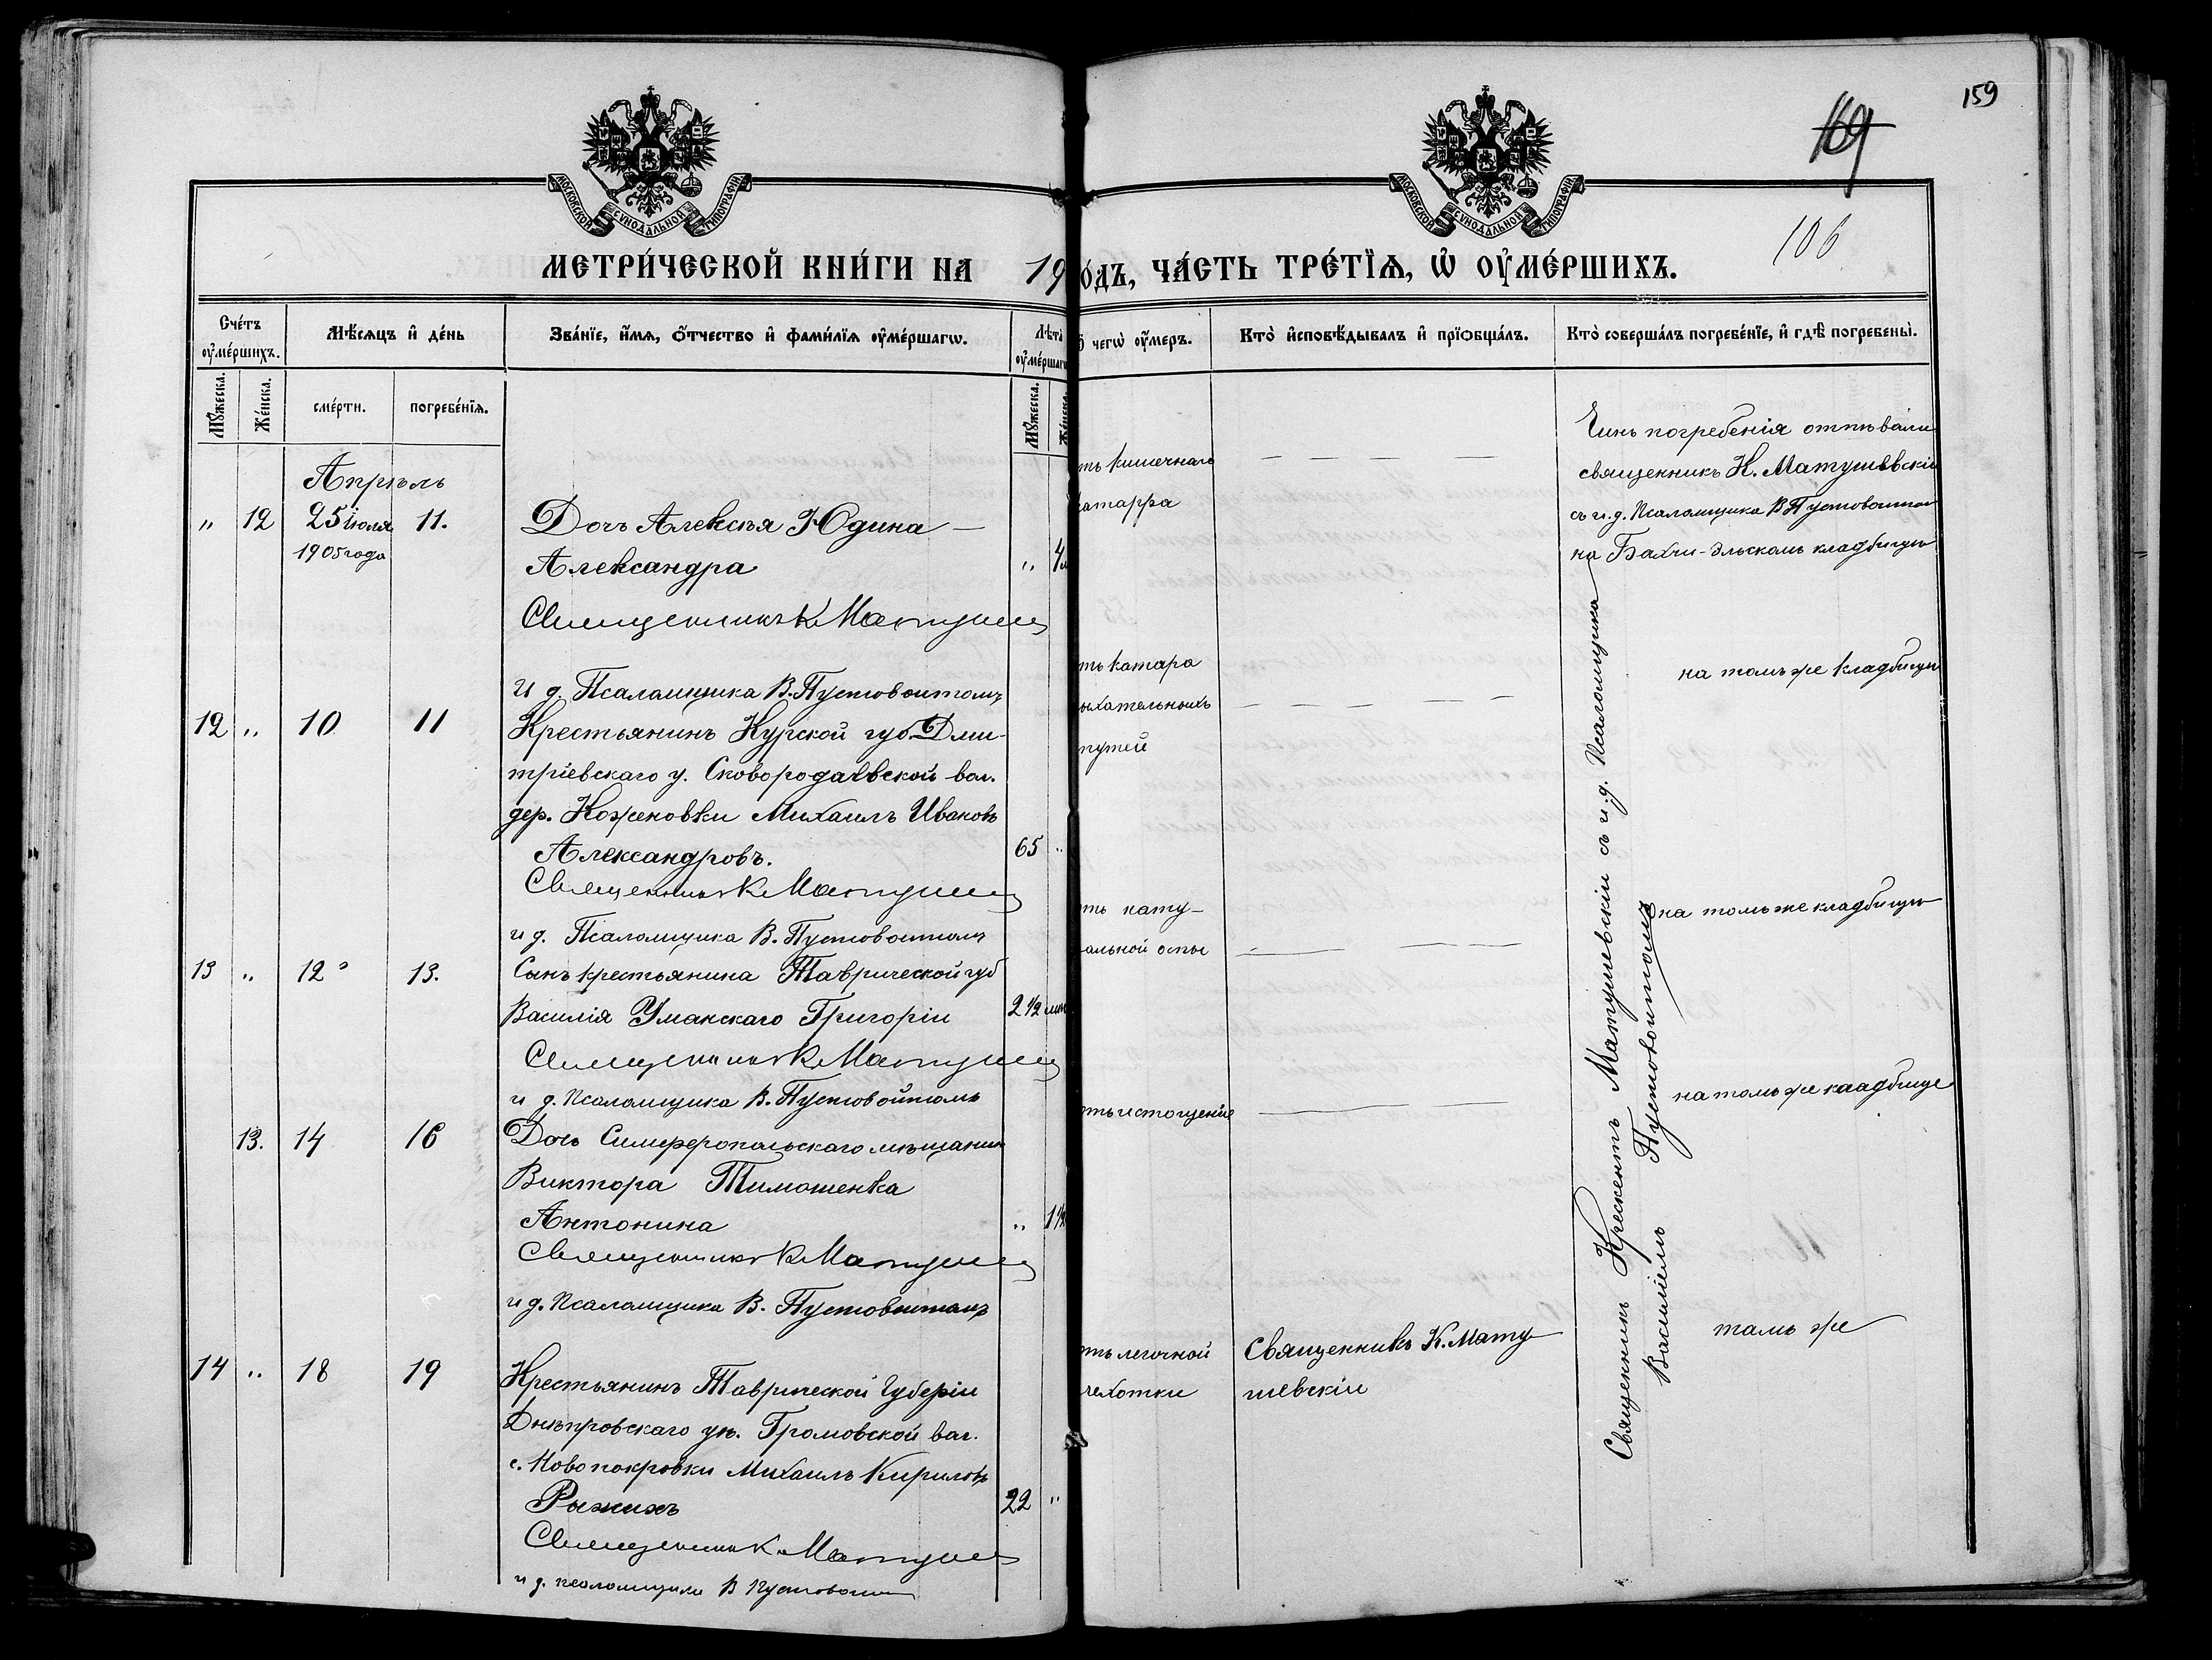 159
169
106
МОСКОВСКОЙ СѴНОДАЛЬНОЙ ТИПОГРАФІИ
МОСКОВСКОЙ СѴНОДАЛЬНОЙ ТИПОГРАФІИ
МЕТРИ́ЧЕСКОЙ КНИ́ГИ НА 19
о́дъ, ЧА́СТЬ ТРЕ́ТЇѦ, Ѡ҆ ОУ҆МЕ́РШИХЪ.
Сче́тъ оу҆ме́ршихъ.
Мѣ́сѧцъ и҆ де́нь
Зва́нїе, и҆́мѧ, ѻ҆́тчество и҆ фами́лїѧ оу҆ме́ршагѡ.
Лѣта̀ оу҆ме́ршаг
чегѡ̀ оу҆́меръ.
Кто̀ и҆сповѣ́дывалъ и҆ прїѡбща́лъ.
Кто̀ соверша́лъ погребе́нїе, и҆ гдѣ̀ погребены̀.
Мꙋ́жеска.
Же́нска.
сме́рти.
погребе́нїѧ.
Мꙋ́жеска.
Апрѣль
„ 12 25 Іюля 11.
1905 года
Дочь Алексѣя Юдина —
Александра „ 4 м
Священникъ К Матуше
И д. Псаломщика В. Пустовойтомъ
ть кишечнаго
катарра
— — — —
Чинъ погребенія отпѣвали
священникъ К. Матушевскій
съ и. д. Псаломщика В Пустовойтом
на Бахчи-Эльскомъ кладбищѣ
12 „ 10 11
Крестьянинъ Курской губ. Дми-
тріевскаго у. Сковородаевской вол.
дер. Коженовки Михаилъ Ивановъ
Александровъ. 65 „
Священникъ К Матуше
и д. Псаломщика В. Пустовойтомъ
ть катара
ыхательныхъ
путей
— — — —
на томъ же кладбищѣ
13 „ 12 13.
Сынъ крестьянина Таврической губ
Василія Уманскаго Григорій 2 1/2
Священникъ К Матуше
и д. Псаломщика В. Пустовойтомъ
ть нату-
альной оспы
— — —
на томъ же кладбищѣ
13. 14 16
Дочь Симферопольскаго мѣщанин
Виктора Тимошенка
Антонина „ 1 1/2
Священникъ К Матуше
и д. Псаломщика В. Пустовойтомъ
ть истощенія
— — —
на томъ же кладбище
14 „ 18 19
Крестьянинъ Таврической Губерніи
Днѣпровскаго уѣ. Громовской вол.
с. Новопокровки Михаилъ Кириловъ
Рыжихъ 22 „
Священникъ К. Матуше
и д. псаломщика В Пустовойтом
ть легочной
чахотки
Священникъ К. Мату
шевскій
тамъ же
Священникъ Крескентъ Матушевскій съ и. д. Псаломщика
Василіемъ Пустовойтомъ